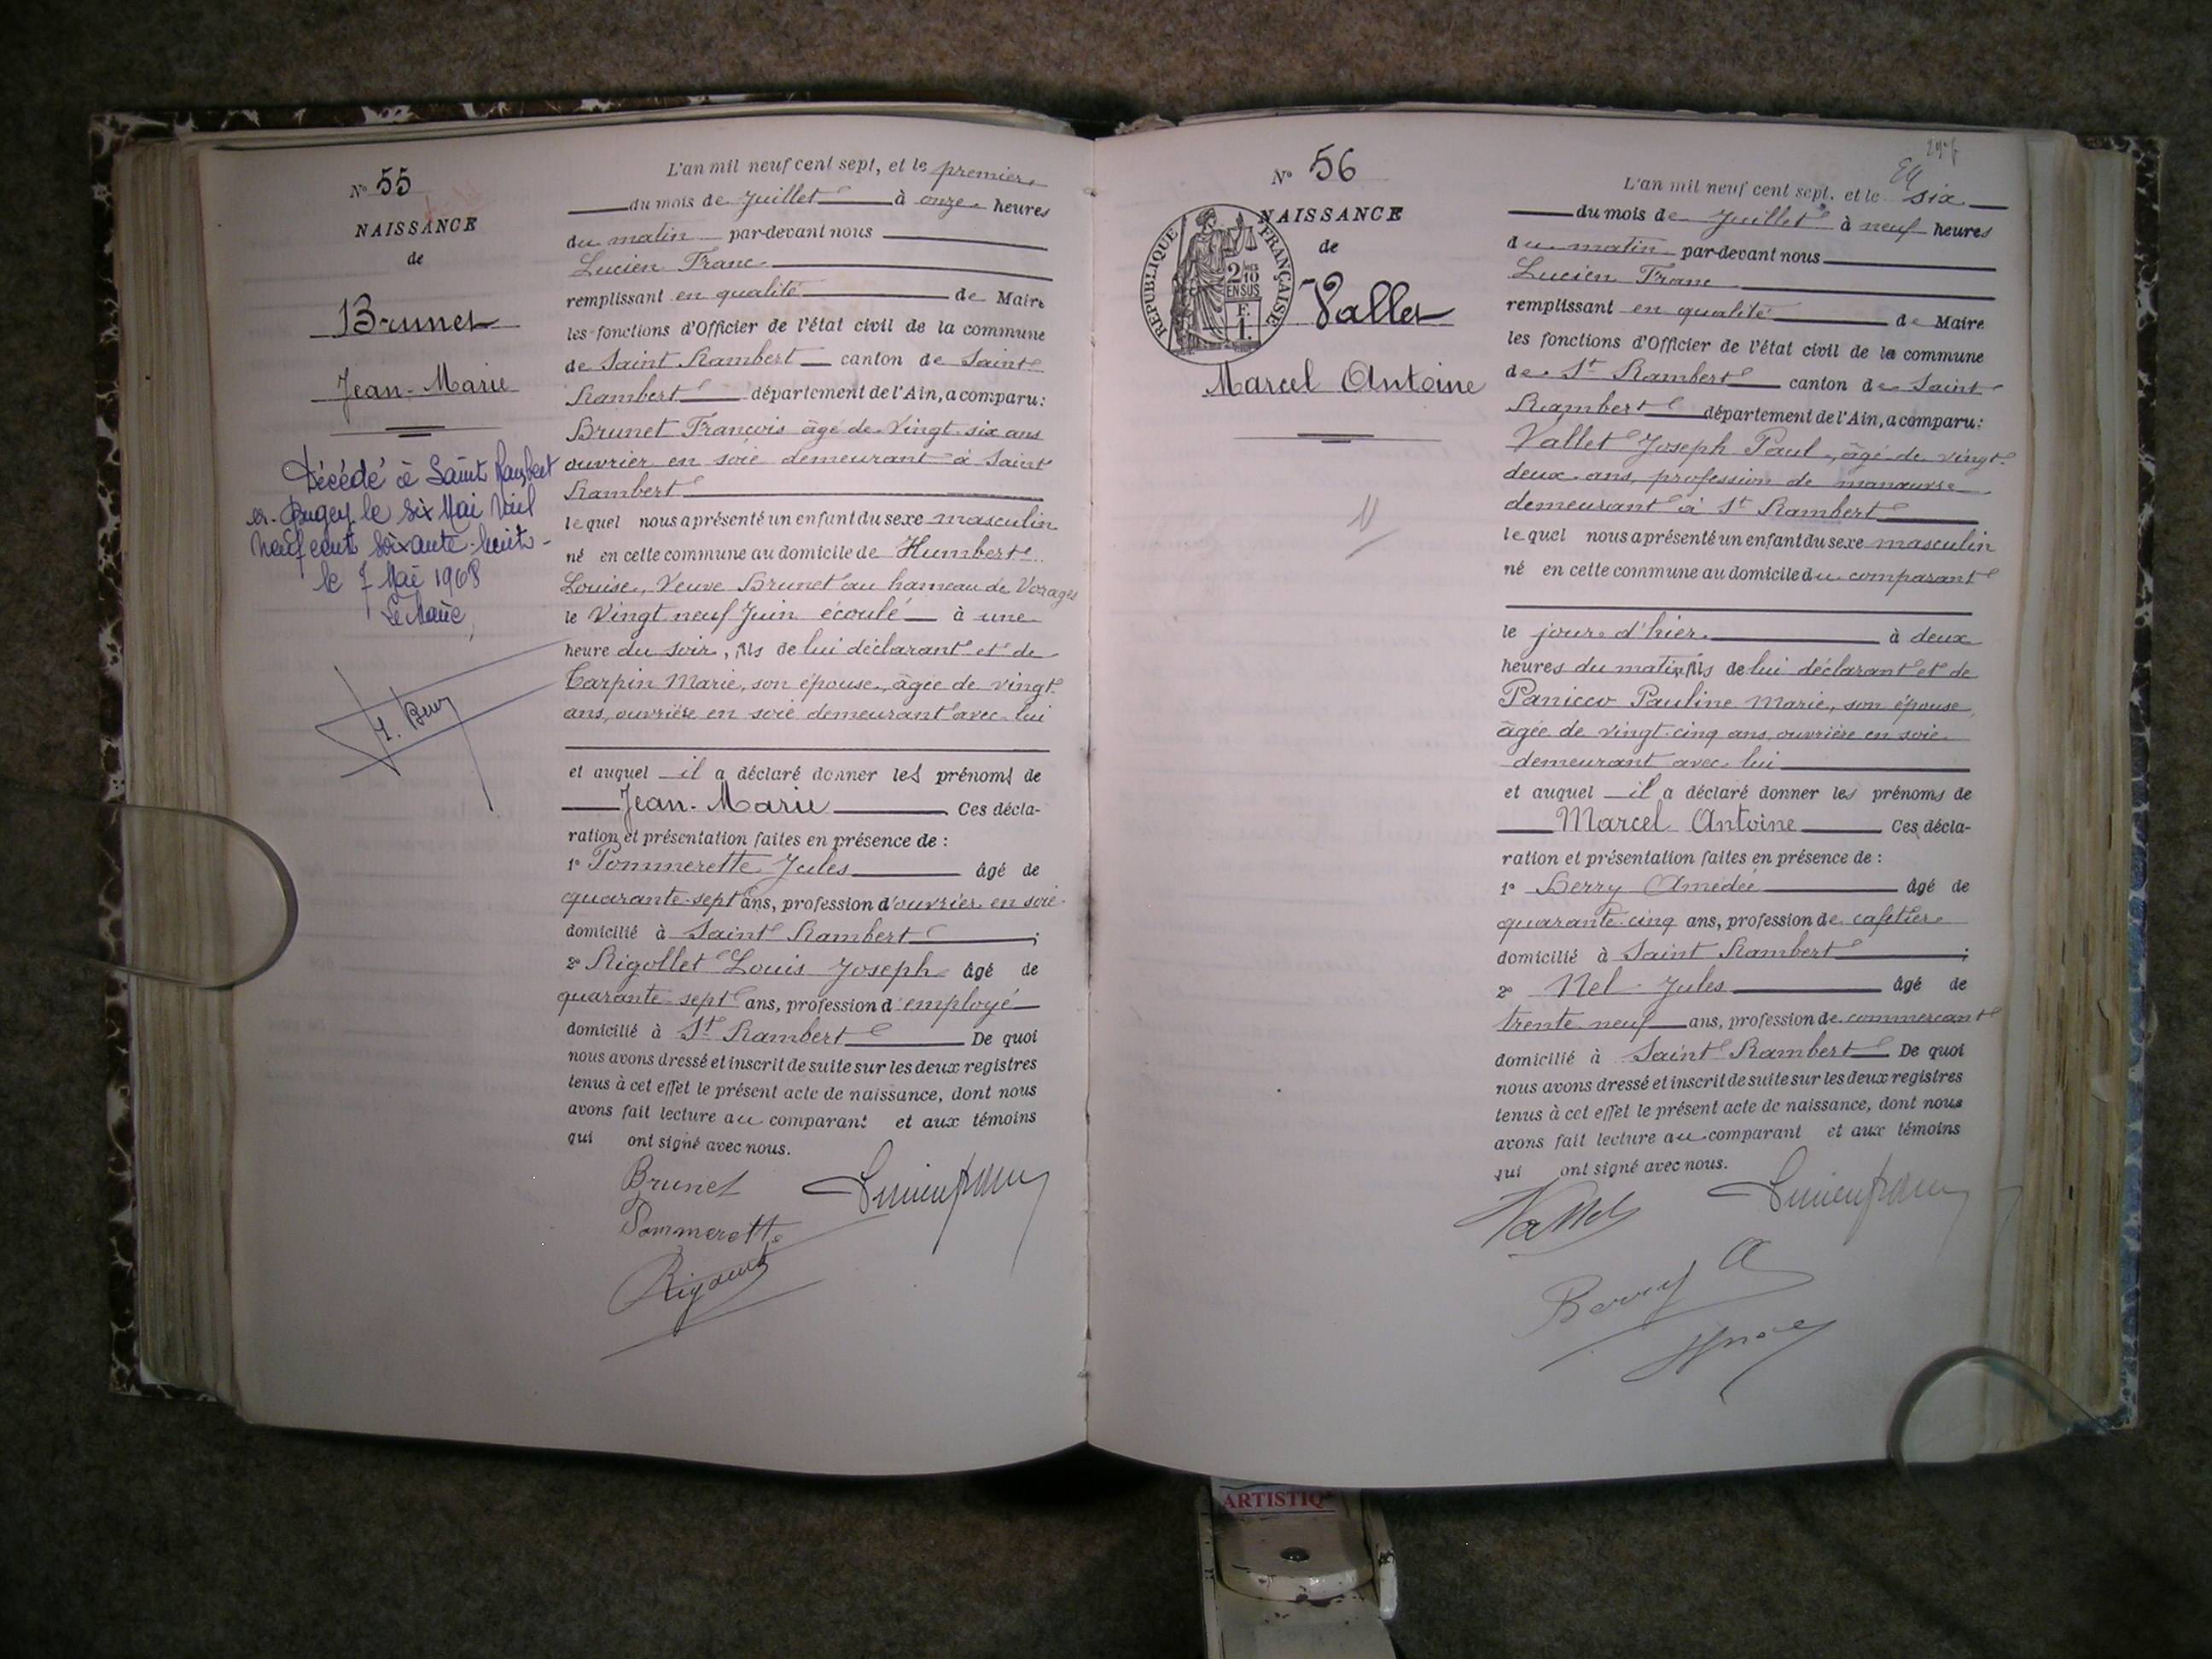 N° 55
NAISSANCE
de
Brunet
Jean-Marie
Décédé à Saint Rambert
en-Bugey le Six Mai Mil
neuf cent soixante-huit-
le 7 Mai 1968
Le Maire,
L'an mil neuf cent sept, et le premier
du mois de Juillet à onze heures
du matin par-devant nous
Lucien Franc
remplissant en qualité de Maire
les fonctions d'Officier de l'état civil de la commune
de Saint Rambert canton de Saint
Rambert département de l'Ain, a comparu:
Brunet François âgé de vingt-six ans
ouvrier en soie demeurant à Saint
Rambert
lequel nous a présenté un enfant du sexe masculin
né en cette commune au domicile de Humbert
Louise, Veuve Brunet au hameau de Vorages
le Vingt neuf Juin écoulé à une
heure du soir, fils de lui déclarant et de
Carpin Marie, son épouse, âgée de vingt
ans, ouvrière en soie demeurant avec lui
et auquel il a déclaré donner les prénoms de
Jean-Marie Ces décla-
ration et présentation faites en présence de :
1° Pommerette Jules âgé de
quarante-sept ans, profession d'ouvrier en soie
domicilié à Saint Rambert ;
2° Rigollet Louis Joseph âgé de
quarante-sept ans, profession d'employé
domicilié à St Rambert De quoi
nous avons dressé et inscrit de suite sur les deux registres
tenus à cet effet le présent acte de naissance, dont nous
avons fait lecture au comparant et aux témoins
qui ont signé avec nous.
Brunet
Pommerette
N° 56
NAISSANCE
de
Vallet
Marcel Antoine
RÉPUBLIQUE FRANÇAISE
2/10 EN SUS
F.
1.
L'an mil neuf cent sept, et le six
du mois de Juillet à neuf heures
du matin par-devant nous
Lucien Franc
remplissant en qualité de Maire
les fonctions d'Officier de l'état civil de la commune
de St Rambert canton de Saint
Rambert département de l'Ain, a comparu:
Vallet Joseph Paul, âgé de vingt-
deux ans, profession de manœuvre
demeurant à St Rambert
lequel nous a présenté un enfant du sexe masculin
né en cette commune au domicile du comparant
le jour d'hier à deux
heures du matin, fils de lui déclarant et de
Panicco Pauline Marie, son épouse
âgée de vingt-cinq ans, ouvrière en soie
demeurant avec lui
et auquel il a déclaré donner les prénoms de
Marcel Antoine Ces décla-
ration et présentation faites en présence de :
1° Berry Amédée âgé de
quarante-cinq ans, profession de cafetier
domicilié à Saint Rambert ;
2° Nel Jules âgé de
trente neuf ans, profession de commerçant
domicilié à Saint Rambert De quoi
nous avons dressé et inscrit de suite sur les deux registres
tenus à cet effet le présent acte de naissance, dont nous
avons fait lecture au comparant et aux témoins
qui ont signé avec nous.
Vallet
ARTISTIQ